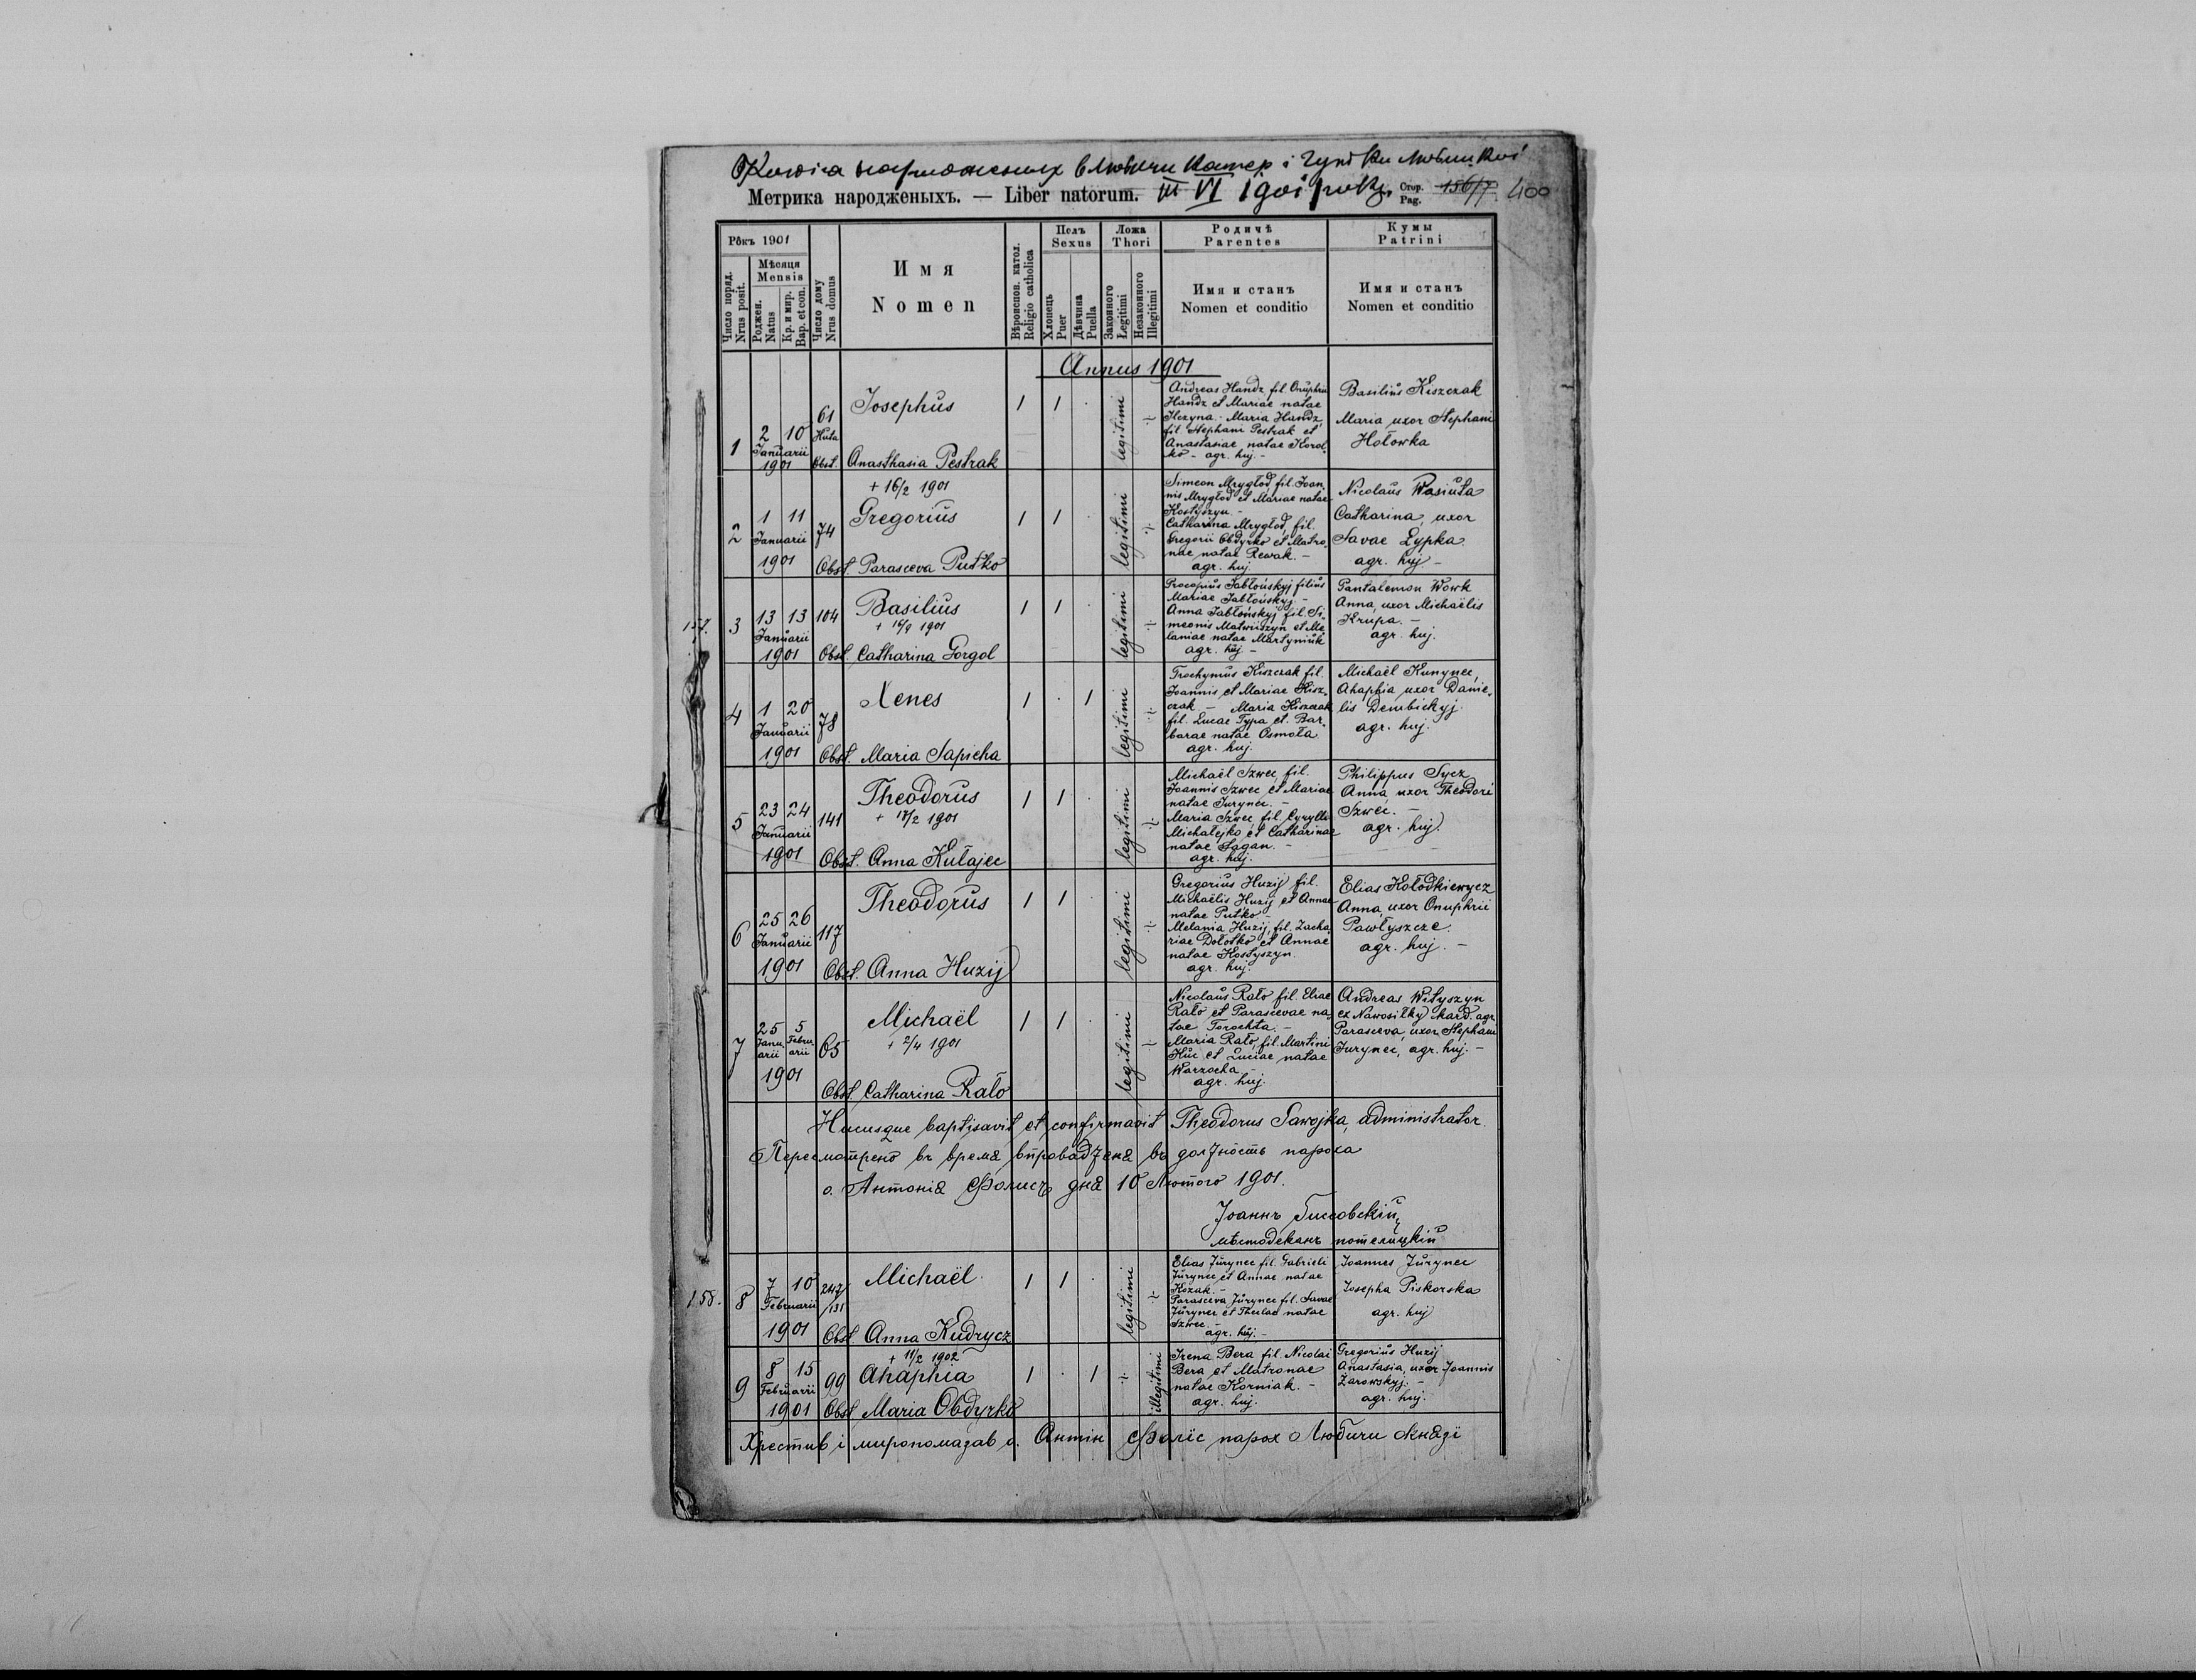 Копія народжених в Любичи Камер і Гуті Любицкої
Метрика народженыхъ. — Liber natorum. III VI 1901 року. Стор. Pag. 156/7 400
Рôкъ 1901
Число поряд. Nrus posit.
Мѣсяця Mensis
Роджен. Natus
Кр. и мир. Bap. et con.
Число дому Nrus domus
Имя
Nomen
Вѣроиспов. катол. Religio catholica
Полъ Sexus
Хлопець Puer
Дѣвчина Puella
Ложа Thori
Законного Legitimi
Незаконного Illegitimi
Родичѣ
Parentes
Имя и станъ
Nomen et conditio
Кумы
Patrini
Имя и станъ
Nomen et conditio
Annus 1901
1
2 10
Januarii
1901
61
Huta
Josephus
Obst. Anasthasia Pestrak
1 1 ·
legitimi
Andreas Handz fil. Onuphrii
Handz et Mariae natae
Ilczyna - Maria Handz,
fil. Stephani Pestrak et
Anastasiae natae Korol-
ko - agr. huj. -
Basilius Kiszczak
Maria uxor Stephani
Hołowka
2
1 11
Januarii
1901
74
+ 16/2 1901
Gregorius
Obst. Parasceva Putko
1 1 ·
legitimi
Simeon Mrygłod, fil. Joan-
nis Mrygłod et Mariae natae
Kostyszyn. -
Catharina Mrygłod, fil.
Gregorii Obdyrko et Matro-
nae natae Rewak. -
agr. huj.
Nicolaus Wasiuta
Catharina, uxor
Savae Lypka.
agr. huj -
157.
3
13 13
Januarii
1901
104
Basilius
+ 16/9 1901
Obst. Catharina Gorgol
1 1 ·
legitimi
Procopius Jabłońskyj filius
Mariae Jabłońskyj. -
Anna Jabłońskyj fil. Si-
meonis Matwiiszyn et Me-
laniae natae Martyniuk
agr. huj -
Pantalemon Wowk
Anna, uxor Michaëlis
Krupa. -
agr. huj.
4
1 20
Januarii
1901
78
Xenes
Obst. Maria Sapieha
1 · 1
legitimi
Trochymus Kiszczak fil.
Joannis et Mariae Kisz-
czak - Maria Kiszczak
fil. Lucae Typa et Bar-
barae natae Osmoła.
agr. huj.
Michaël Kunynec,
Ahaphia uxor Danie-
lis Dembickyj.
agr. huj.
5
23 24
Januarii
1901
141
Theodorus
+ 17/2 1901
Obst. Anna Kułajec
1 1 ·
legitimi
Michaël Szwec, fil.
Joannis Szwec et Mariae
natae Jurynec. -
Maria Szwec, fil. Cyrylli
Michałejko et Catharinae
natae Sagan. -
agr. huj.
Philippus Sycz
Anna uxor Theodori
Szwec. -
agr. huj.
6
25 26
Januarii
1901
117
Theodorus
Obst. Anna Huzij
1 1 ·
legitimi
Gregorius Huzij fil.
Michaëlis Huzij et Annae
natae Putko -
Melania Huzij, fil. Zacha-
riae Dołotko et Annae
natae Kostyszyn.
agr. huj.
Elias Kołodkiewycz
Anna, uxor Onuphrii
Pawłyszcze.
agr. huj. -
7
25 5
Janu- Febru-
arii arii
1901
65
Michaël
+ 2/4 1901
Obst. Catharina Rało
1 1 ·
legitimi
Nicolaus Rało fil. Eliae
Rało et Parascevae na-
tae Torochta. -
Maria Rało, fil. Martini
Kuc et Luciae natae
Warzocha -
agr. huj.
Andreas Wityszyn
ex Nawosiłky kard. agr.
Parasceva, uxor Stephani
Jurynec, agr. huj. -
Hucusque baptisavit et confirmavit Theodorus Sawojka, administrator.
Пересмотрено въ время впроваджена въ должность пароха
о. Антонія Фолисъ дня 10 Лютого 1901.
Іоаннъ
мѣстодеканъ потелицкій
158.
8
7 10
Februarii
1901
247
/131
Michaël
Obst. Anna Kudrycz
1 1 ·
legitimi
Elias Jurynec fil. Gabrieli
Jurynec et Annae natae
Kozak. -
Parasceva Jurynec fil. Savae
Jurynec et Theclae natae
Szwec. -
agr. huj. -
Joannes Jurynec
Josepha Piskorska
agr. huj
9
8 15
Februarii
1901
99
+ 11/2 1902
Ahaphia
Obst. Maria Obdyrko
1 · 1
illegitimi
Irena Bera fil. Nicolai
Bera et Matronae
natae Korniak. -
agr. huj.
Gregorius Huzij
Anastasia, uxor Joannis
Żarowskyj. -
agr. huj.
Хрестив і миропомазав о. Антін Фоліс парох Любичи Князі